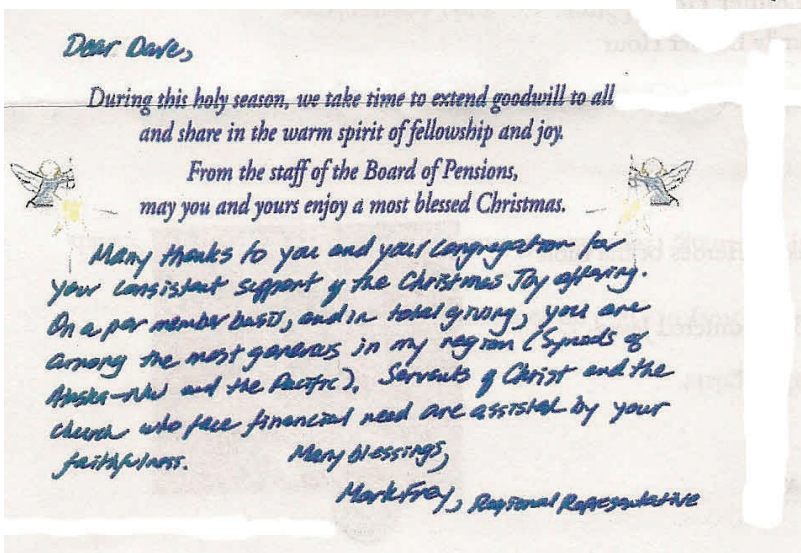 Dear Dave,
During this holy season, we take time to extend goodwill to all
and share in the warm spirit of fellowship and joy.
From the staff of the Board of Pensions,
may you and yours enjoy a most blessed Christmas.
Many thanks to you and your congregation for
your consistent support of the Christmas Joy offering.
On a per member basis, and in total giving, you are
among the most generous in my region (Synods of
Alaska-NW and the Pacific). Servants of Christ and the
church who face financial need are assisted by your
faithfulness. Many blessings,
Mark Frey, Regional Representative